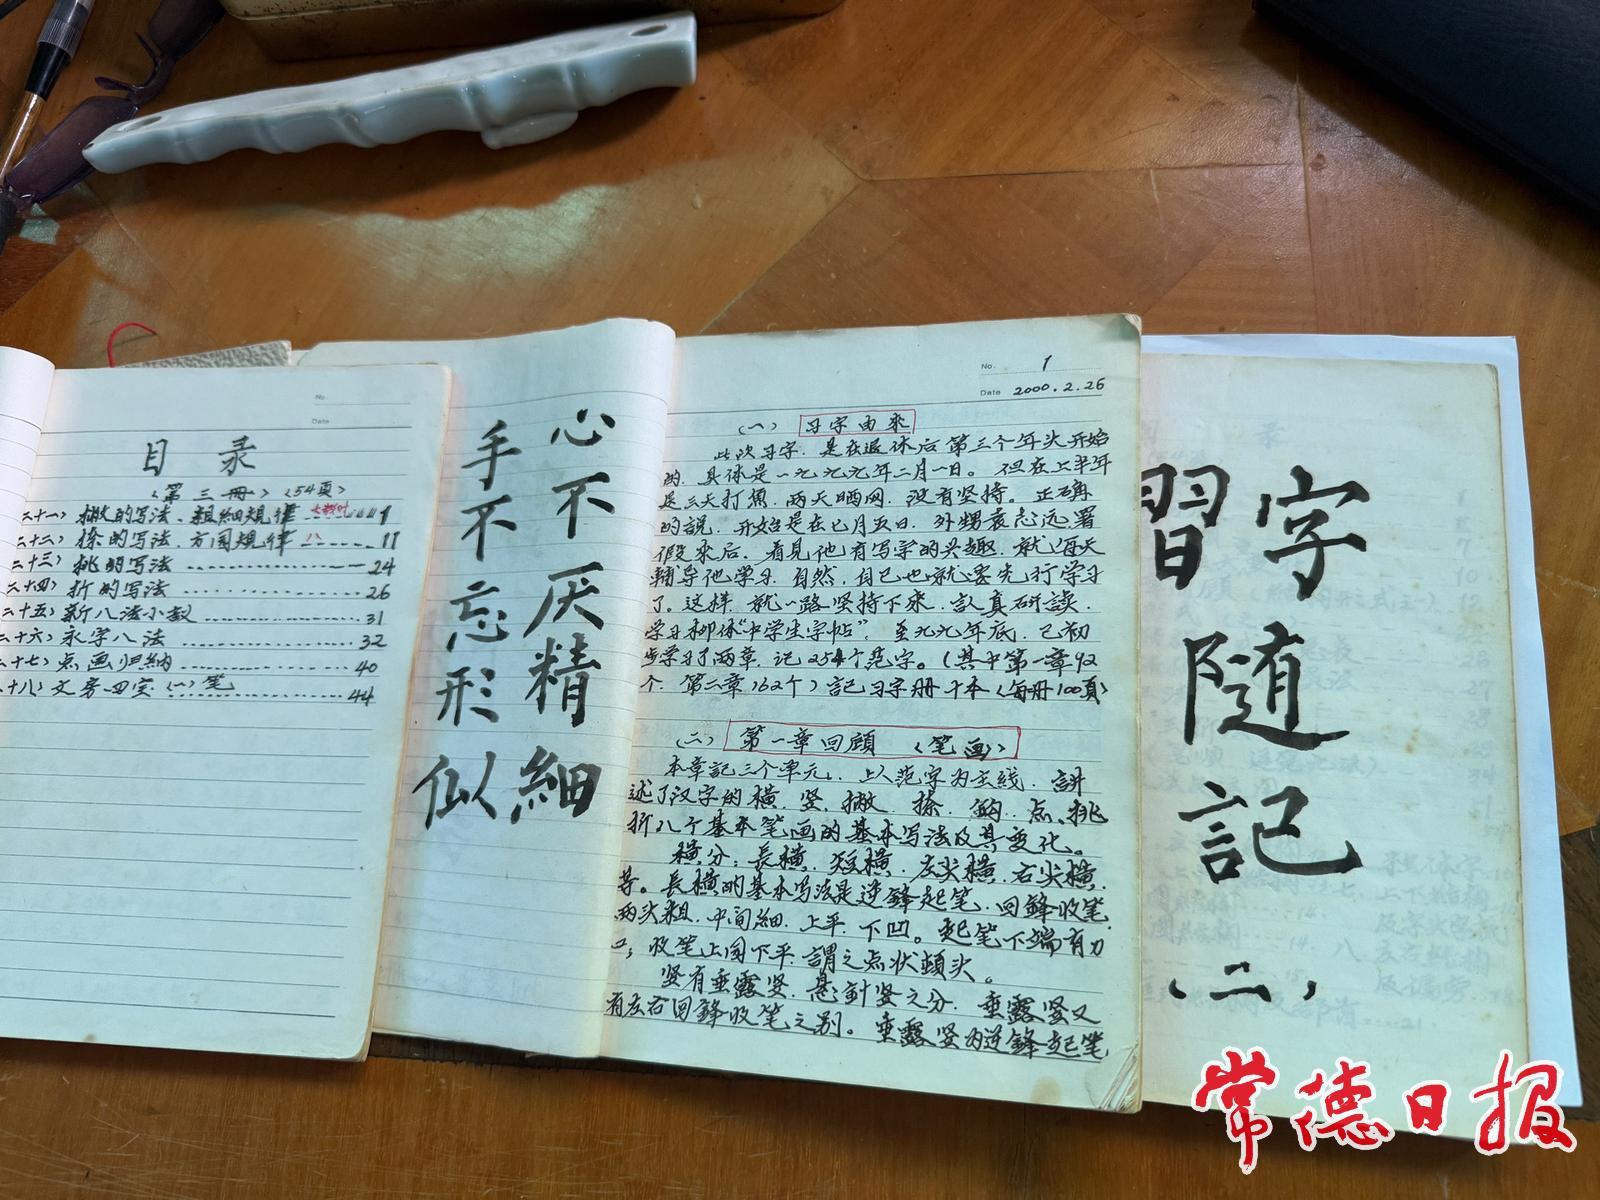 No.
Date
目录
〈第三册〉〈54页〉
二十一）撇的写法、粗细规律 1
二十二）捺的写法、方园規律 11
二十三）挑的写法 24
二十四）折的写法 26
二十五）新八法小叙 31
二十六）永字八法 32
二十七）点画归纳 40
二十八）文房四宝（一）笔 44
心不厌精細
手不忘形似
No. 1
Date 2000.2.26
（一）习字由来
此次习字，是在退休后第三个年头开始
的，具体是一九九九年二月一日。但在上半年
是三天打魚，两天晒网，没有坚持。正确
的説，开始是在七月五日，外甥袁志远署
假来后，看見他有写字的兴趣，就每天
輔导他学习，自然，自己也就要先行学习
了。这样，就一路坚持下来，認真研读，
学习柳体“中学生字帖”，至九九年底，已初
步学习了两章，记254个范字。（其中第一章92
个，第二章162个）記习字册十本（每册100頁）
（二）第一章回顧〈笔画〉
本章記三个单元，上八范字为主线，讲
述了汉字的横、竖、撇、捺、鈎、点、挑、
折八个基本笔画的基本写法及其变化。
横分：長横、短横、左尖横、右尖横、
等。長横的基本写法是逆鋒起笔，回鋒收笔，
两头粗，中间細，上平，下凹。起笔下端有力
口；收笔上园下平，謂之点状頭头。
竖有垂露竖、悬針竖之分，垂露竖又
有左右回鋒收笔之别。垂露竖为逆鋒起笔
習字随記
（二）
常德日报